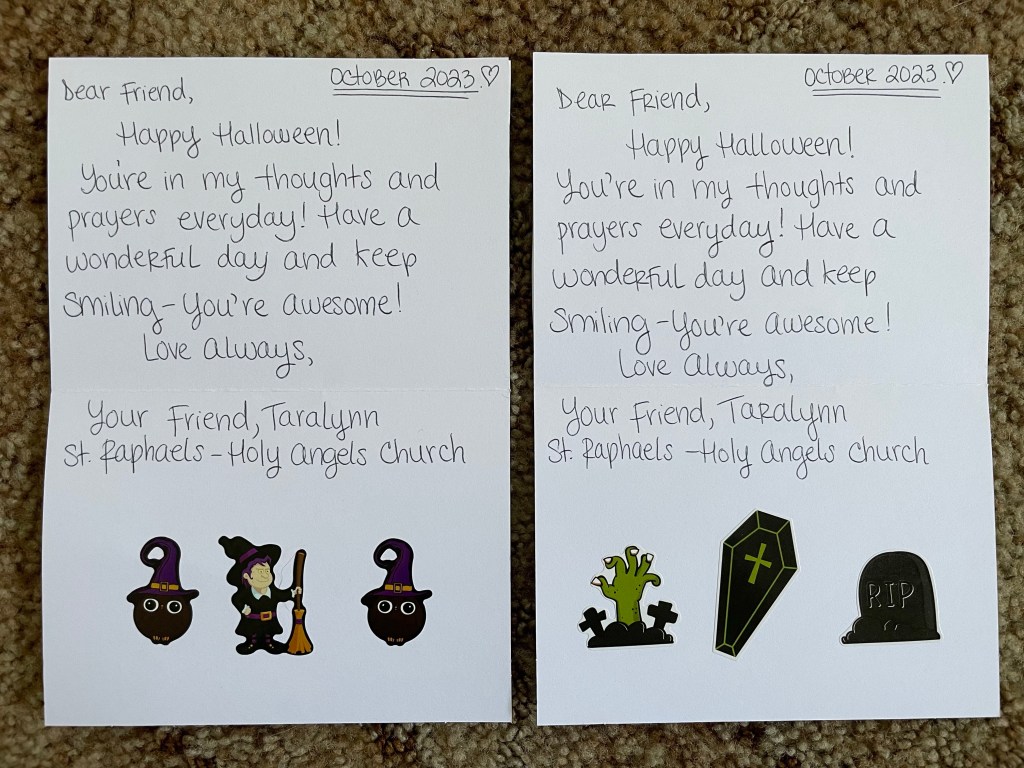 October 2023.♡
Dear Friend,
Happy Halloween!
You're in my thoughts and
prayers everyday! Have a
wonderful day and keep
Smiling - You're awesome!
Love always,
Your Friend, Taralynn
St. Raphaels - Holy Angels Church
October 2023.♡
Dear Friend,
Happy Halloween!
You're in my thoughts and
prayers everyday! Have a
wonderful day and keep
Smiling - You're awesome!
Love always,
Your Friend, Taralynn
St. Raphaels - Holy Angels Church
RIP